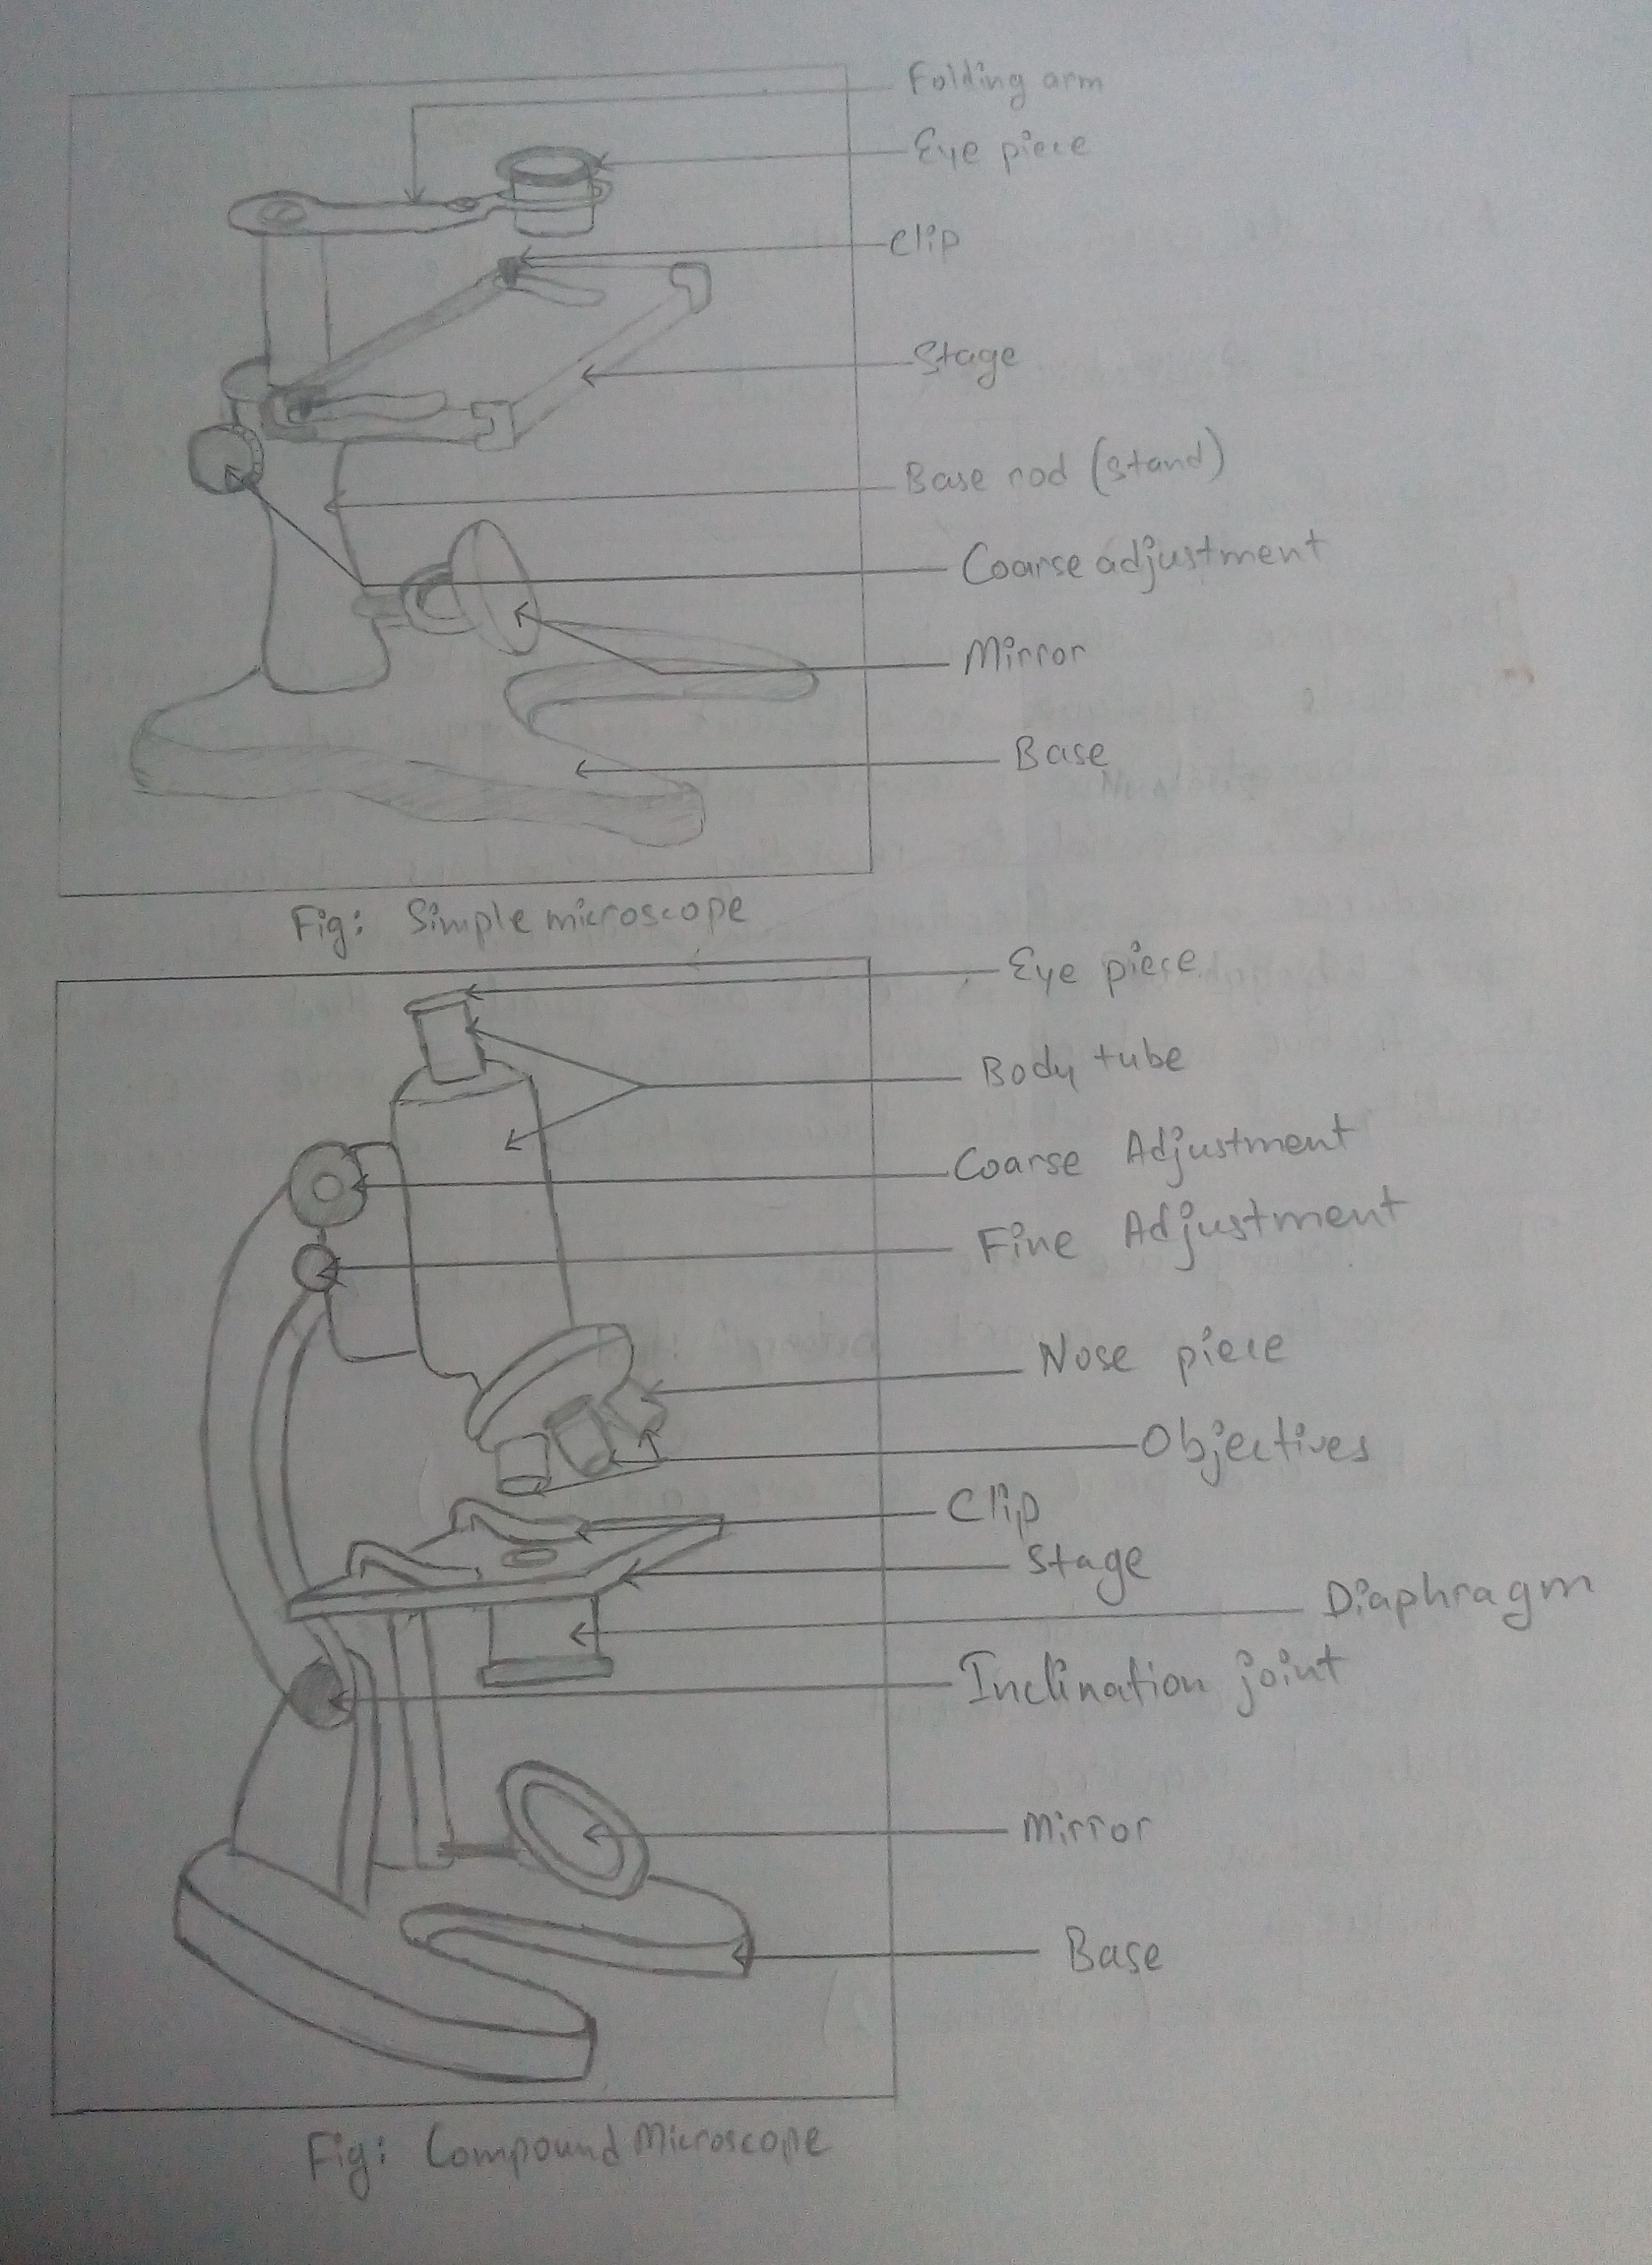 Folding arm
Eye piece
Clip
Stage
Base rod (stand)
Coarse adjustment
Mirror
Base
Fig: Simple microscope
Eye piece
Body tube
Coarse Adjustment
Fine Adjustment
Nose piece
Objectives
Clip
Stage
Diaphragm
Inclination joint
Mirror
Base
Fig: Compound Microscope